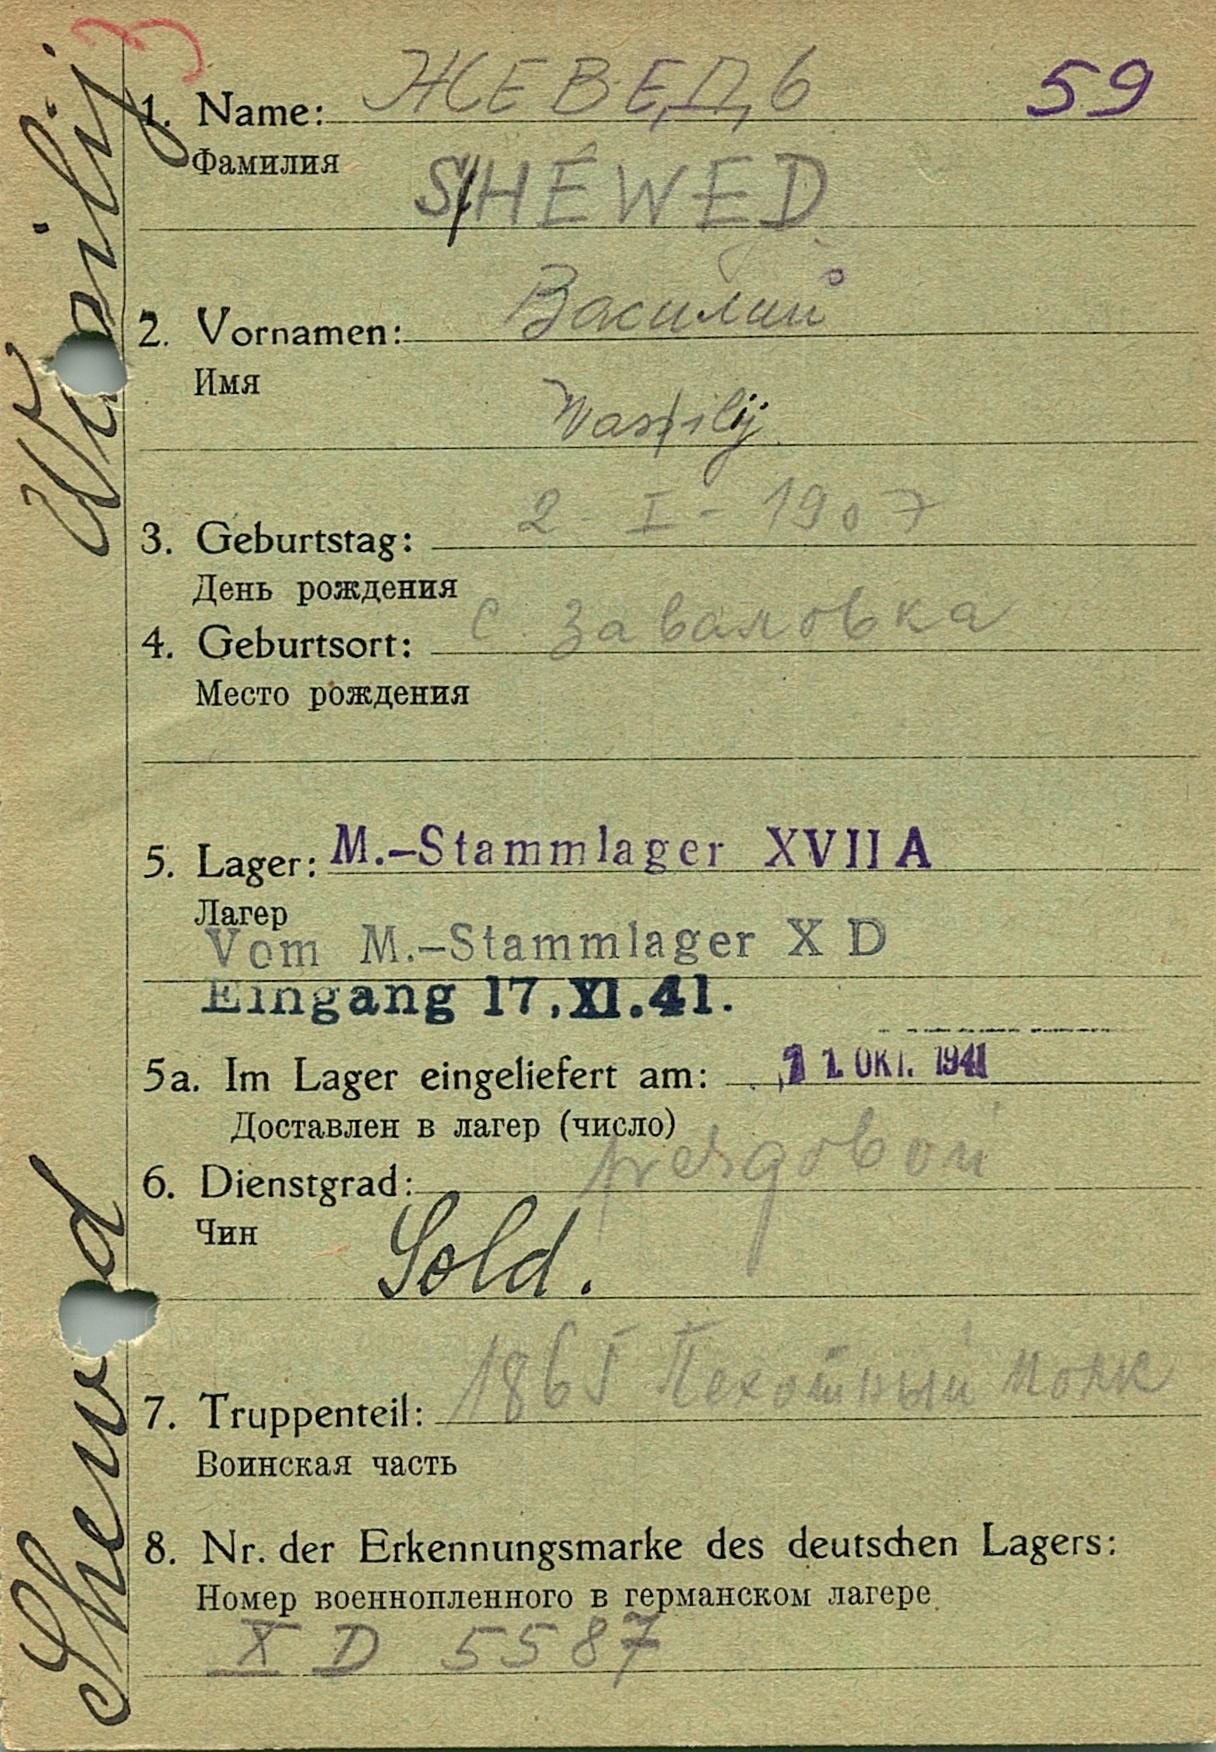 59
1. Name: ЖЕВЕДЬ
Фамилия
SHÉWED
2. Vornamen: Василий
Имя
Wassilij
3. Geburtstag: 2 - I - 1907
День рождения
4. Geburtsort: с Заваловка
Место рождения
5. Lager: M.-Stammlager XVII A
Лагер
Vom M.-Stammlager X D
Eingang 17.XI.41.
5a. Im Lager eingeliefert am: 11. OKT. 1941
Доставлен в лагер (число)
6. Dienstgrad:
Чин
Sold.
7. Truppenteil: 186 Пехотный полк
Воинская часть
8. Nr. der Erkennungsmarke des deutschen Lagers:
Номер военнопленного в германском лагере
X D 5587
Shewed Wasilij